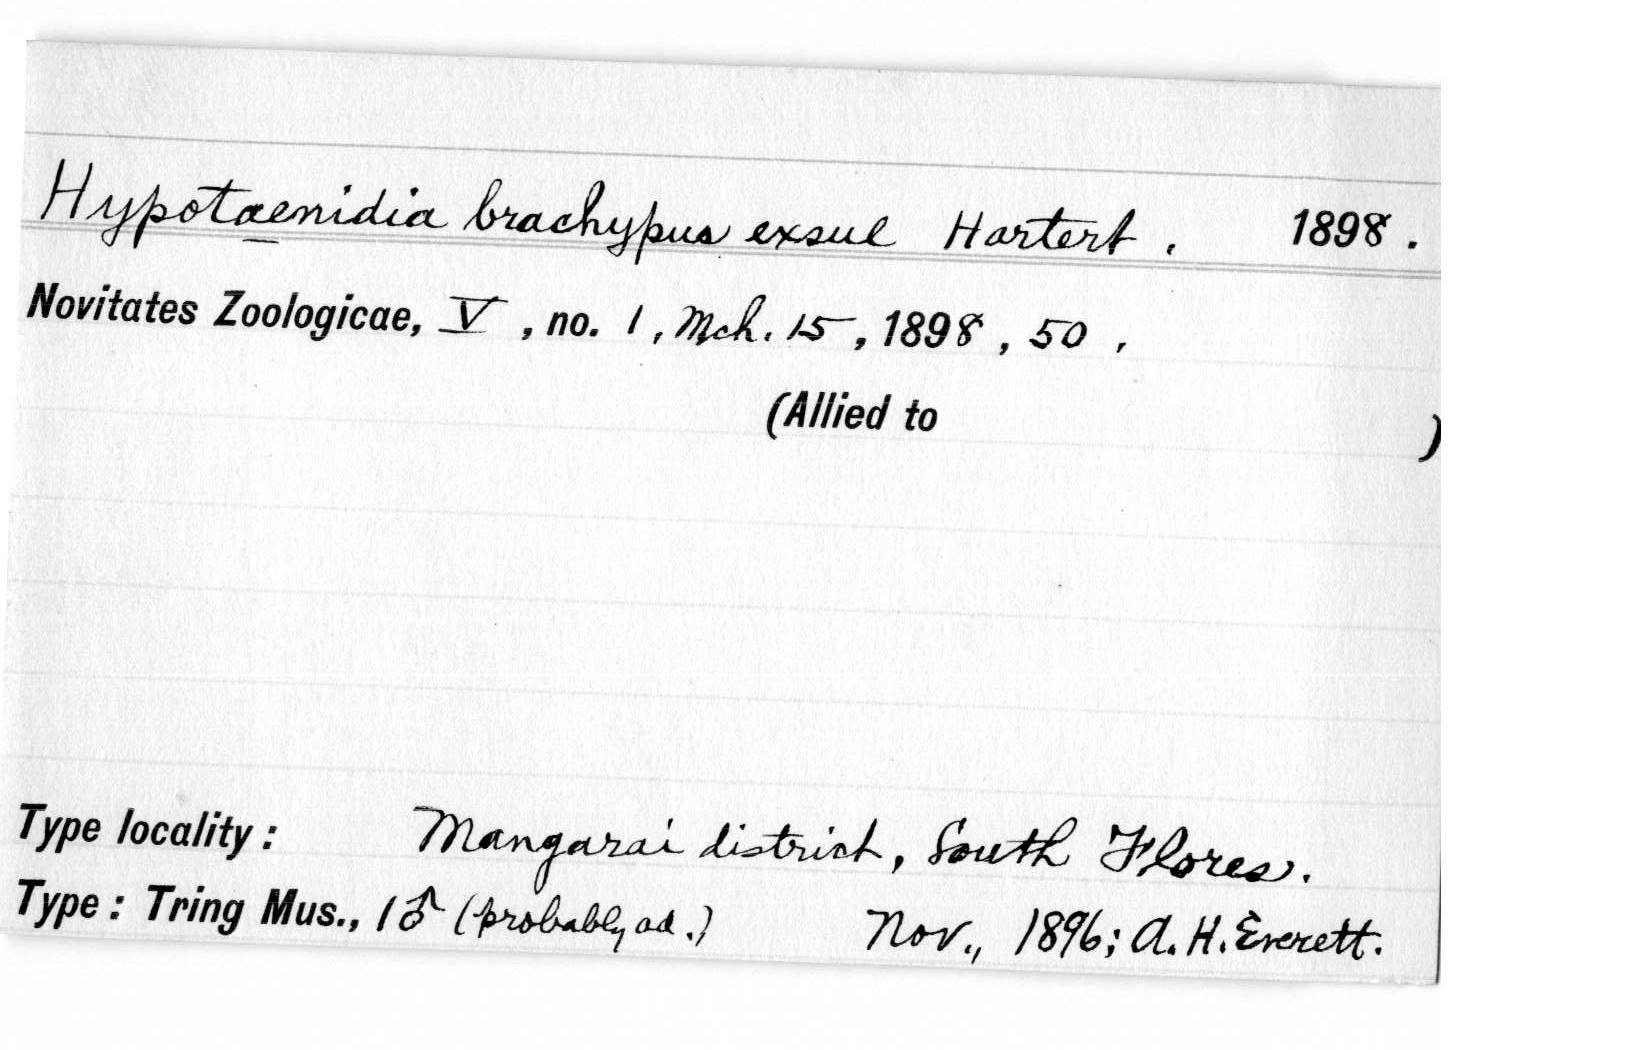 Hypotaenidia brachypus exsul Hartert. 1898.
Novitates Zoologicae, V, no. 1, Mch. 15, 1898, 50,
(Allied to )
Type locality: Mangarai district, South Flores.
Type: Tring Mus., 1♂ (probably ad.) Nov., 1896; A. H. Everett.